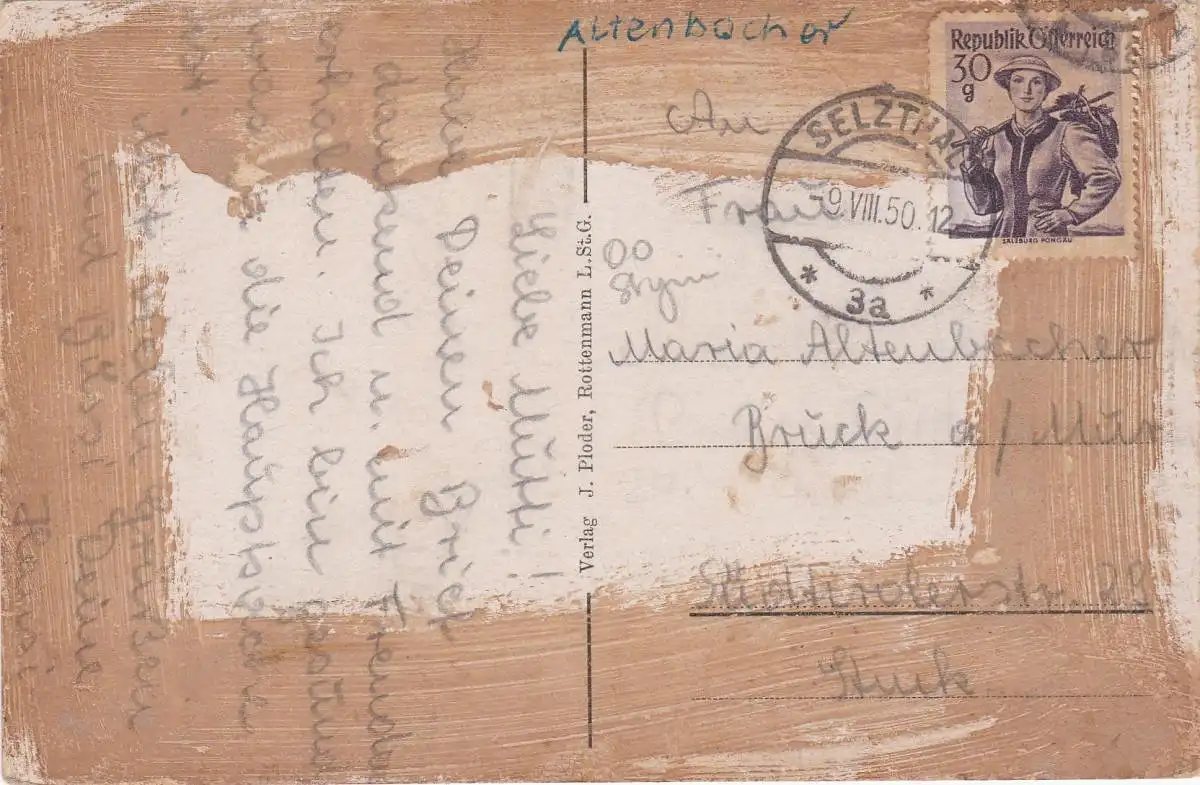 Altenbacher
Republik Österreich
30
g
SALZBURG PONGAU
SELZTHAL
-9.VIII.50.12
* 3a *
An
Frau
Maria Altenbacher
Brück a/Mür
Südtirolerstr. 29
Verlag J. Ploder, Rottenmann L.St.G.
Liebe Mütti!
Deinen Brief
dankend u. mit Freude
erhalten. Ich bin gesünd
die Haüptsache
ist.
Mit vielen Grüßen
und Bussi Deine